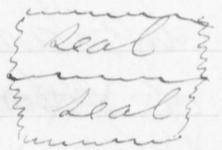 seal
seal